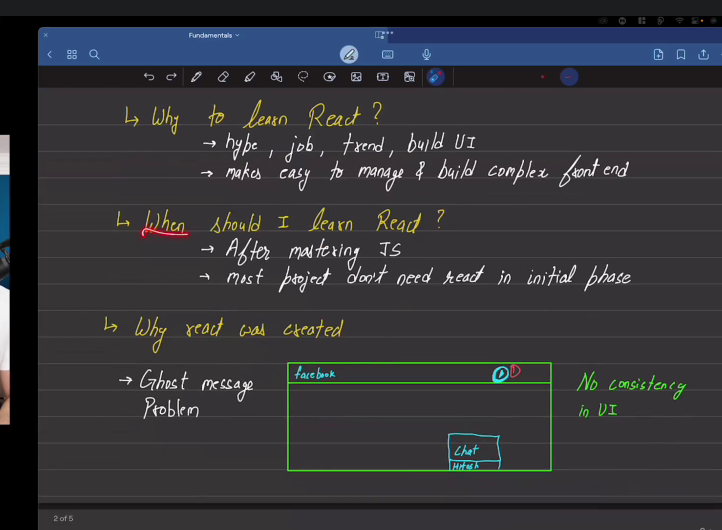 Fundamentals
Why to learn React?
→ hype, job, trend, build UI
→ makes easy to manage & build complex front end
When should I learn React?
→ After mastering JS
→ most project don't need react in initial phase
Why react was created
→ Ghost message
Problem
facebook
1
Chat
Hitesh
No consistency
in UI
2 of 5